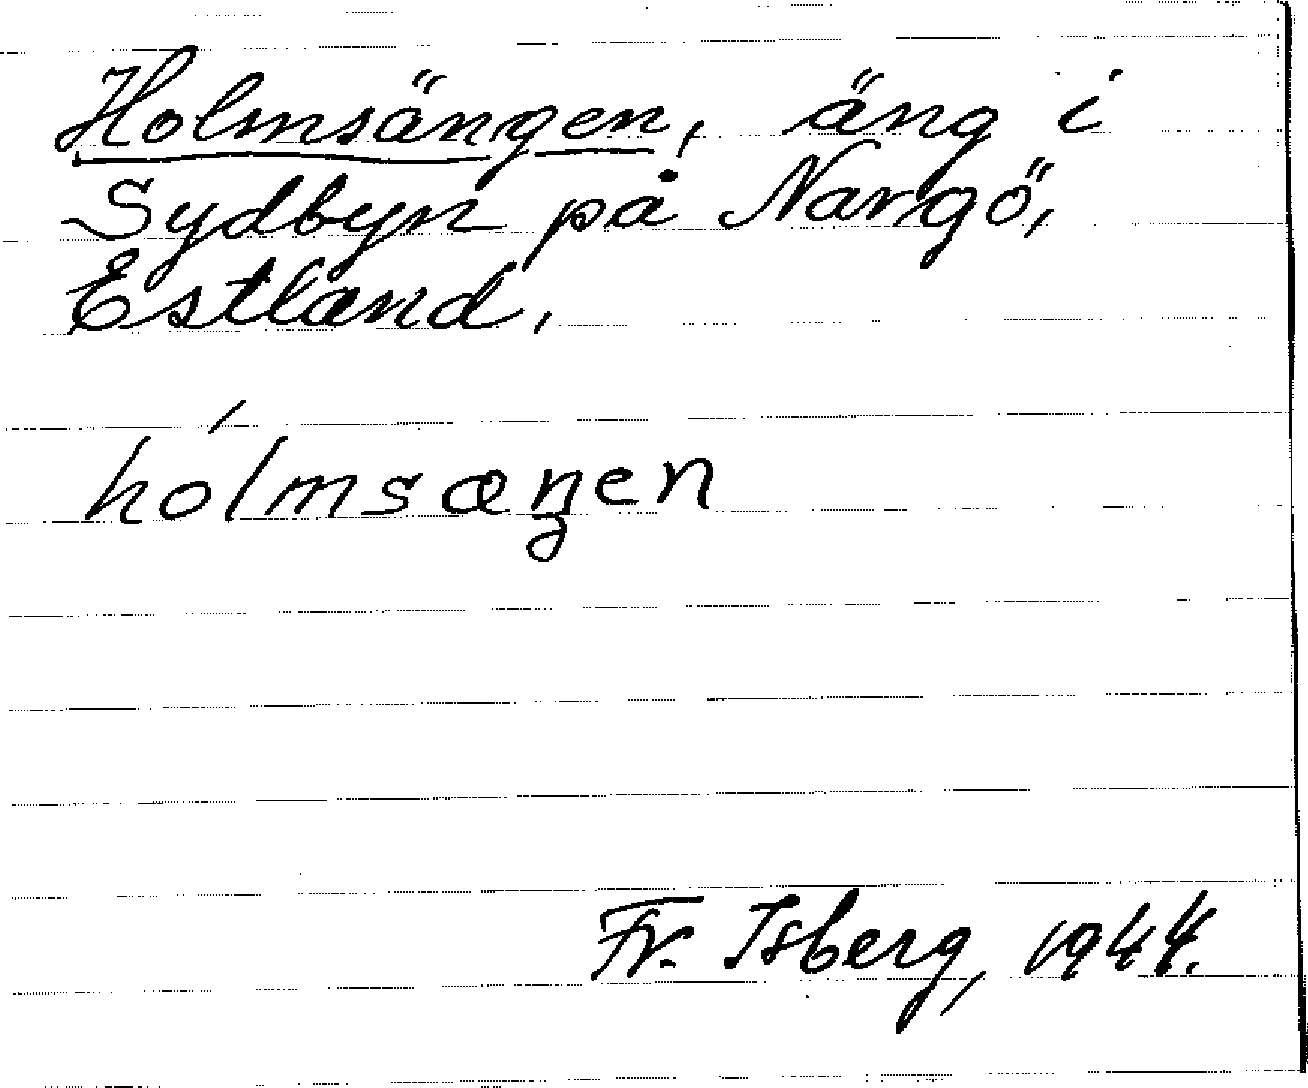 Holmsängen, äng i
Sydbyn på Nargö,
Estland.
hólmsæŋen
Fr. Isberg, 1944.